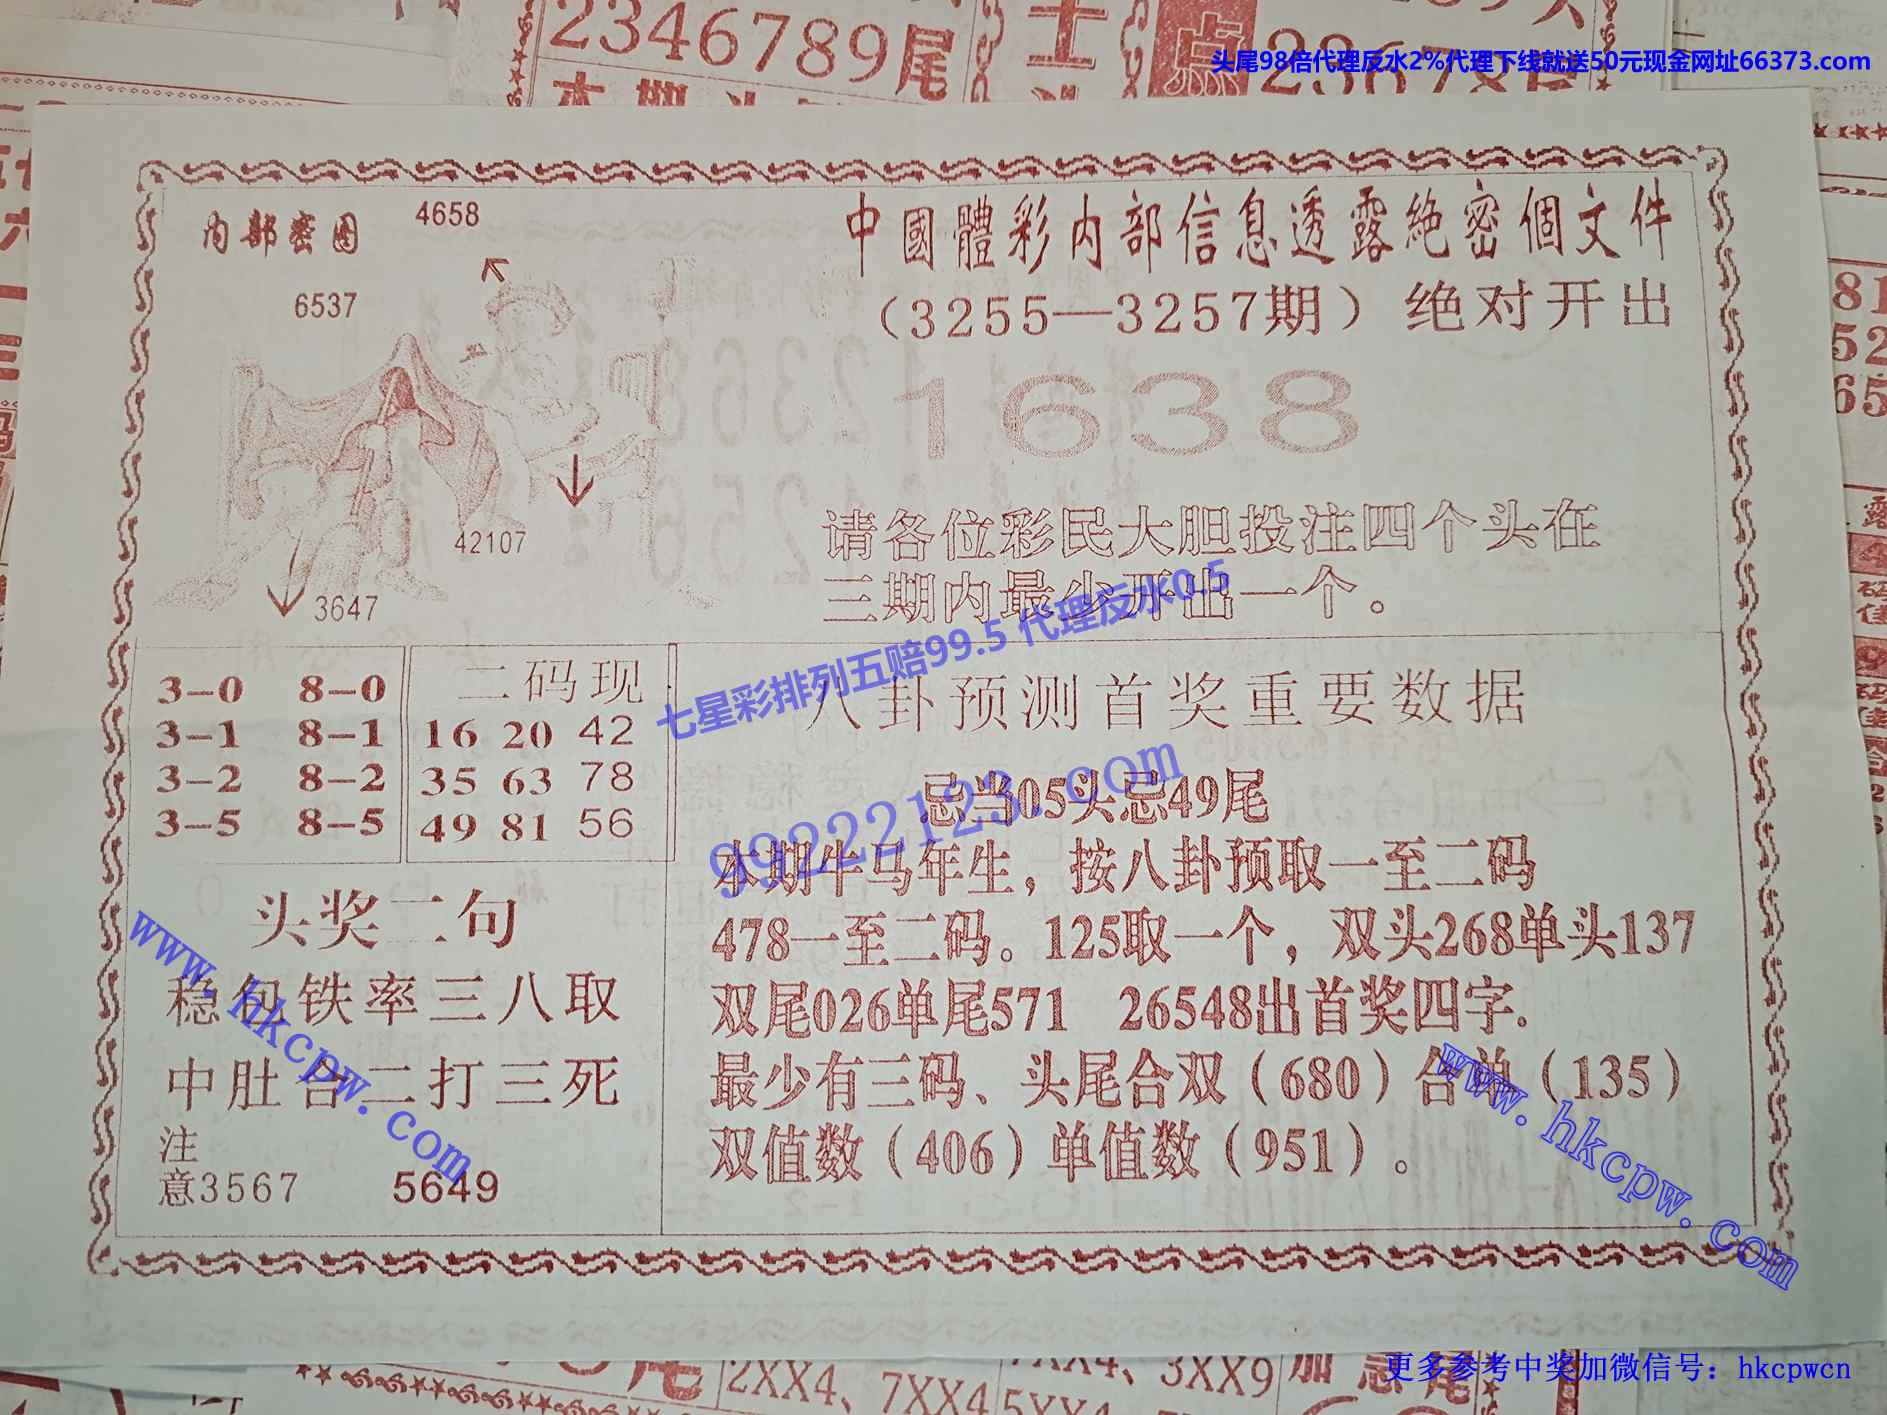 2346789尾
头尾98倍代理反水2%代理下线就送50元现金网址66373.com
内部密图
4658
6537
42107
3647
中國體彩内部信息透露絶密個文件
（3255—3257期）绝对开出
1638
请各位彩民大胆投注四个头在
三期内最少开出一个。
七星彩排列五赔99.5 代理反水0.5
99222123.com
3-0 8-0
3-1 8-1
3-2 8-2
3-5 8-5
二码现
16 20 42
35 63 78
49 81 56
头奖二句
稳包铁率三八取
中肚合二打三死
注
意3567 5649
八卦预测首奖重要数据
忌当05头忌49尾
本期牛马年生，按八卦预取一至二码
478一至二码。125取一个，双头268单头137
双尾026单尾571 26548出首奖四字.
最少有三码、头尾合双（680）合单（135）
双值数（406）单值数（951）。
www.hkcpw.com
www.hkcpw.com
2XX4、7XX4
3XX9
更多参考中奖加微信号：hkcpwcn